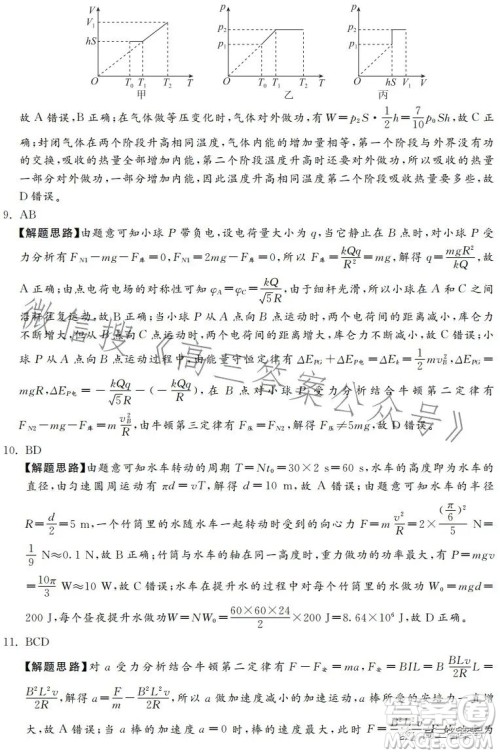 V
V₁
hS
O
T₀ T₁ T₂ T
甲
p
p₂
p₁
O
T₀ T₁ T₂ T
乙
p
p₂
p₁
O
hS V₁ V
丙
故A错误,B正确;在气体做等压变化时,气体对外做功,有W=p₂S·\frac{1}{2}h=\frac{7}{10}p₀Sh,故C正
确;封闭气体在两个阶段升高相同温度,气体内能的增加量相等,第一个阶段与外界没有功
的交换,吸收的热量全部增加内能,第二个阶段温度升高时还要对外做功,所以吸收的热量
一部分对外做功,一部分增加内能,因此温度升高相同温度第二个阶段吸收热量要多些,故
D错误。
9. AB
【解题思路】由题意可知小球P带负电,设电荷量大小为q,当它静止在B点时,对小球P受
力分析有F_{N1}-mg-F_库=0,F_{N1}=2mg-F_库=0,所以F_库=\frac{kQq}{R²}=mg,解得q=\frac{mgR²}{kQ},故
A正确;由点电荷电场的对称性可知φ_A=φ_C=\frac{kQ}{\sqrt{5}R},由于细杆光滑,所以小球在A和C之间
沿杆往复运动,故B正确;当小球P从A点向B点运动时,两个电荷间的距离减小,库仑力
不断增大,但从B点向C点运动时,两个电荷间的距离增大,库仑力不断减小,故C错误;小
球P从A点向B点运动过程中,由能量守恒定律有ΔE_{PG}+ΔE_{P电}=ΔE_k=\frac{1}{2}mv_B²,ΔE_{PG}=
mgR,ΔE_{P电}=-\frac{kQq}{\sqrt{5}R}-(-\frac{kQq}{R}),在B点对小球P受力分析结合牛顿第二定律有
F_{N2}-mg-F_库=m\frac{v_B²}{R},由牛顿第三定律有F_压=F_{N2},解得F_压≠5mg,故D错误。
10. BD
【解题思路】由题意可知水车转动的周期T=Nt₀=30×2 s=60 s,水车的高度即为水车的
直径,由匀速圆周运动有πd=vT,解得d=10 m,故A错误;由题意可知水车的半径
R=\frac{d}{2}=5 m,一个竹筒里的水随水车一起转动时受到的向心力F=m\frac{v²}{R}=2×\frac{(\frac{π}{6})²}{5} N≈
\frac{1}{9} N≈0.1 N,故B正确;竹筒与水车的轴在同一高度时,重力做功的功率最大,有P=mgv
=\frac{10π}{3} W≈10 W,故C错误;水车在提升水的过程中对每个竹筒里的水做功W₀=mgd=
200 J,每个昼夜提升水做功W=NW₀=\frac{60×60×24}{2}×200 J=8.64×10⁶ J,故D正确。
11. BCD
【解题思路】对a受力分析结合牛顿第二定律有F-F_安=ma,F_安=BIL=B\frac{BLv}{2R}L=
\frac{B²L²v}{2R},解得a=\frac{F}{m}-\frac{B²L²v}{2R},所以a做加速度减小的加速运动,a棒所受的安培力一直增
大,故A错误;当a棒的加速度a=0时,棒的速度最大,此时F=
微信搜《高三答案公众号》